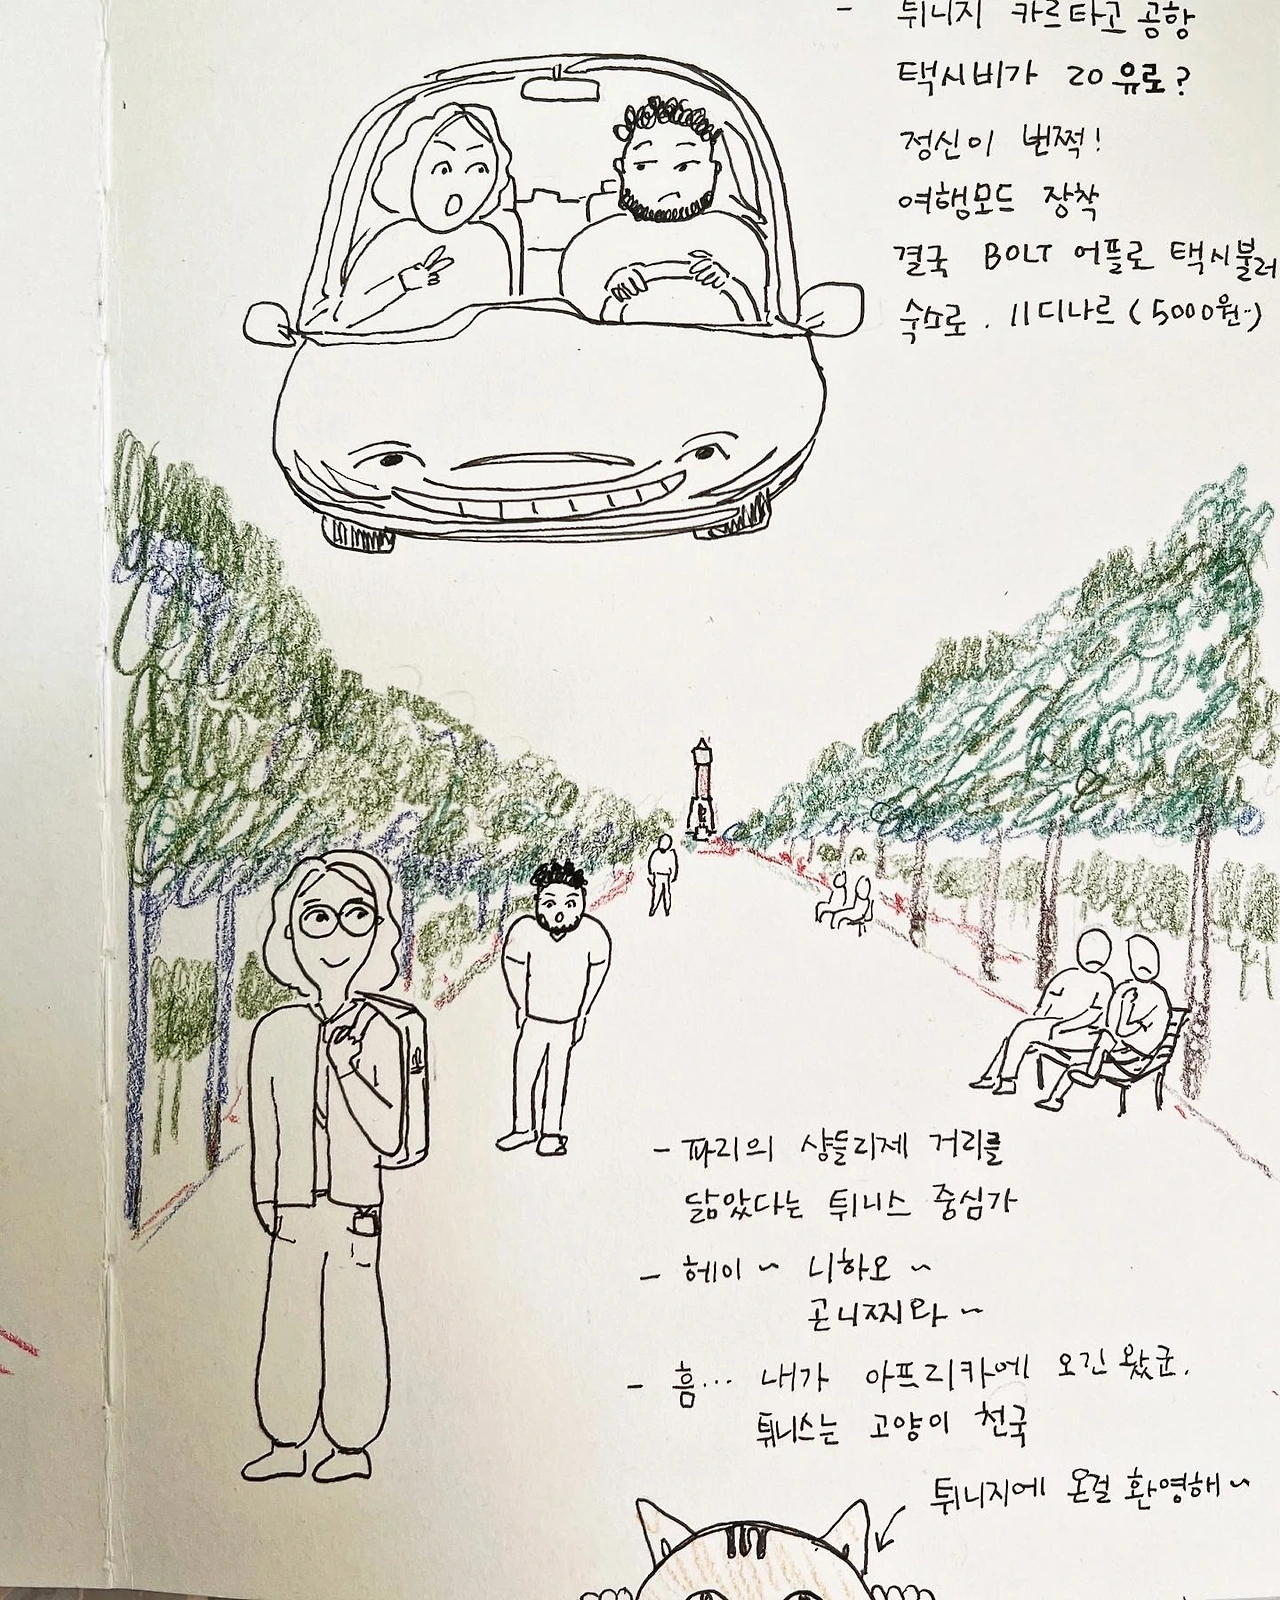 - 튀니지 카르타고 공항
택시비가 20 유로?
정신이 번쩍!
여행모드 장착
결국 BOLT 어플로 택시불러
숙소로. 11디나르 (5000원..)
- 파리의 샹들리제 거리를
닮았다는 튀니스 중심가
- 헤이~ 니하오~
곤니찌와~
- 흠... 내가 아프리카에 오긴 왔군.
튀니스는 고양이 천국
튀니지에 온걸 환영해~